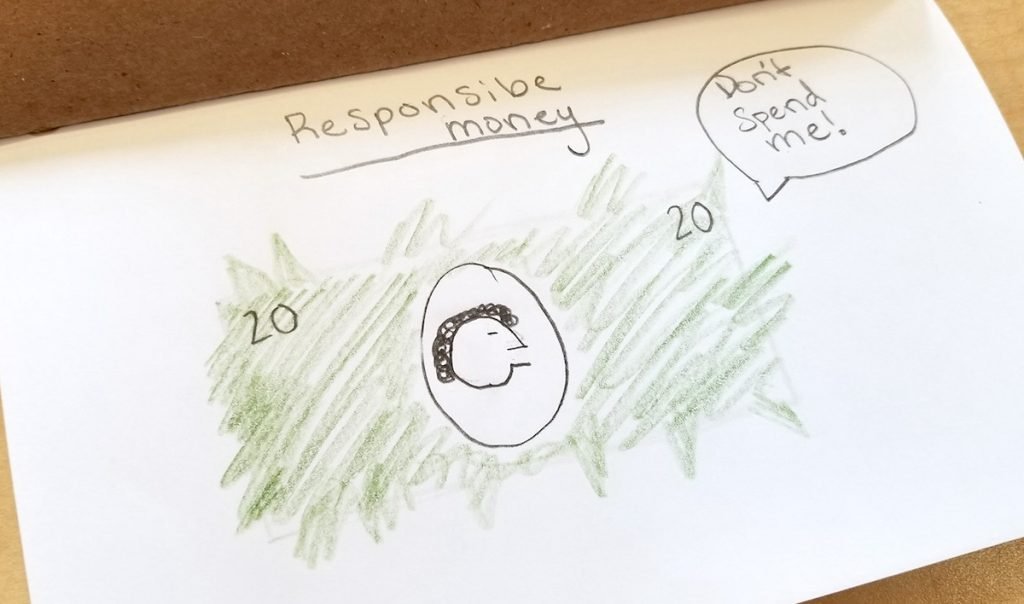 Responsibe
money
Don't
spend
me!
20
20